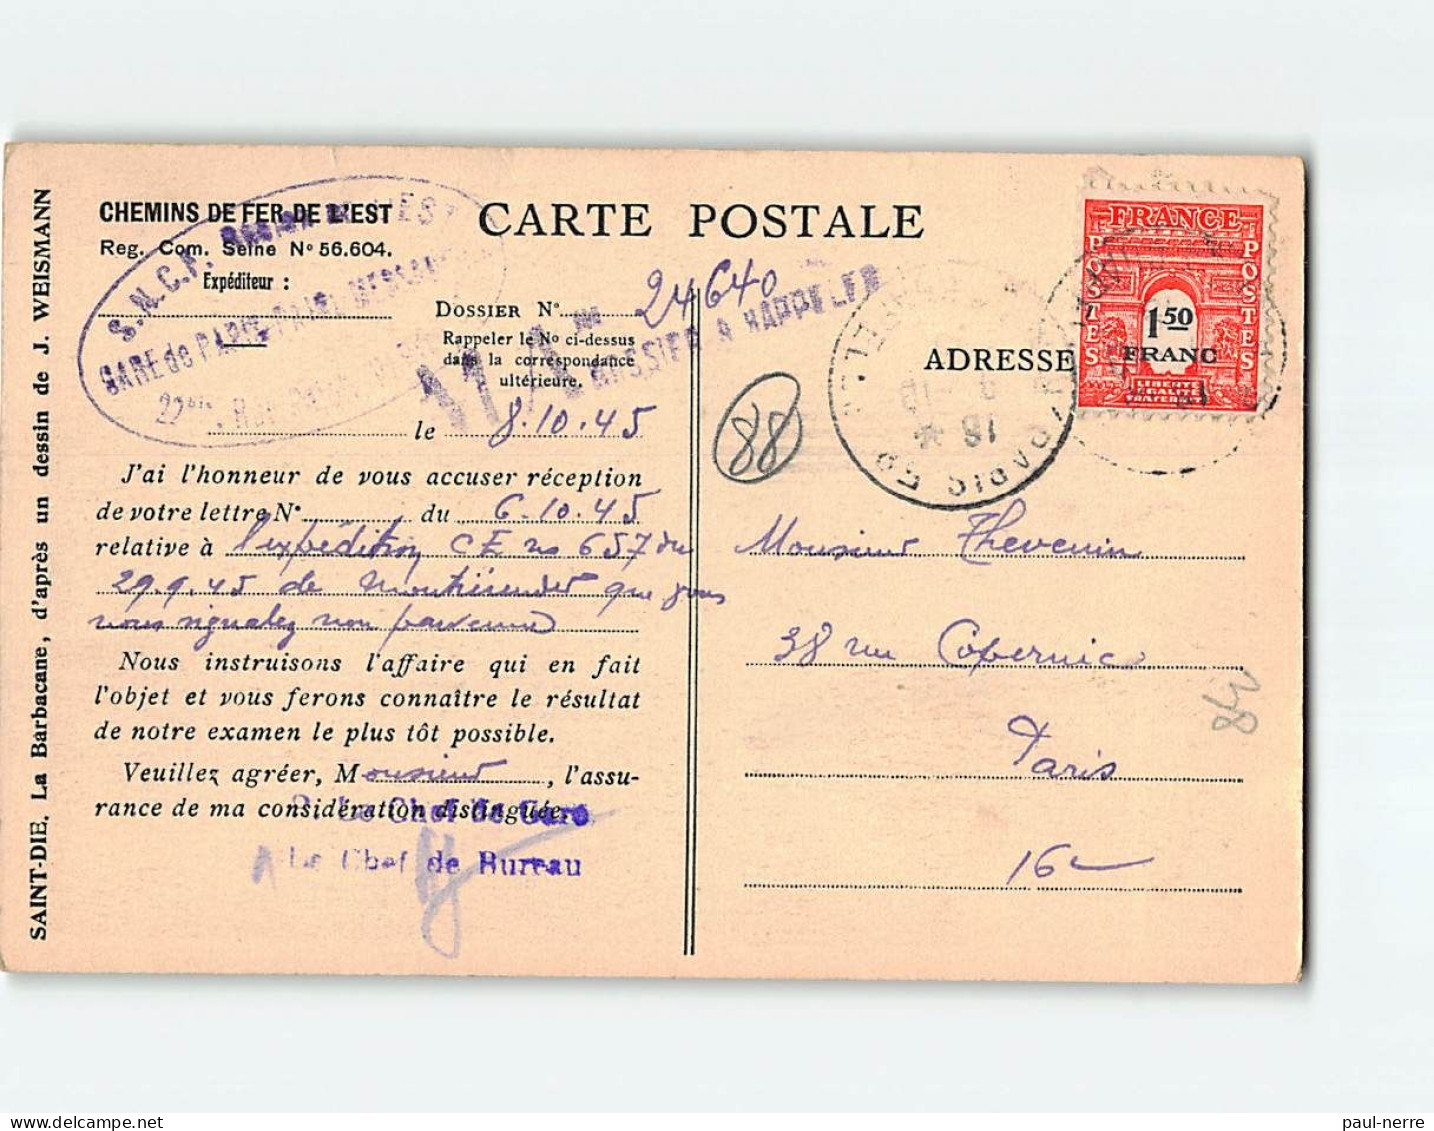 SAINT-DIE. La Barbacane, d'après un dessin de J. WEISMANN
CHEMINS DE FER DE L'EST
Reg. Com. Seine N° 56.604.
Expéditeur :
S.N.C.F.
GARE de PARIS
CARTE POSTALE
DOSSIER N° 24640
DOSSIER A RAPPELER
Rappeler le No ci-dessus
dans la correspondance
ultérieure.
le 8.10.45
J'ai l'honneur de vous accuser réception
de votre lettre N° du 6.10.45
relative à l'expédition CE no 657 du
29.9.45 de que vous
nous signalez non parvenue
Nous instruisons l'affaire qui en fait
l'objet et vous ferons connaître le résultat
de notre examen le plus tôt possible.
Veuillez agréer, Monsieur, l'assu-
rance de ma considération distinguée.
Le Chef de Gare
Le Chef de Bureau
88
ADRESSE
FRANCE
POSTES
POSTES
1 50
FRANC
LIBERTÉ
ÉGALITÉ
FRATERNITÉ
Monsieur Thevenin
38 rue Copernic
Paris
16
paul-nerre